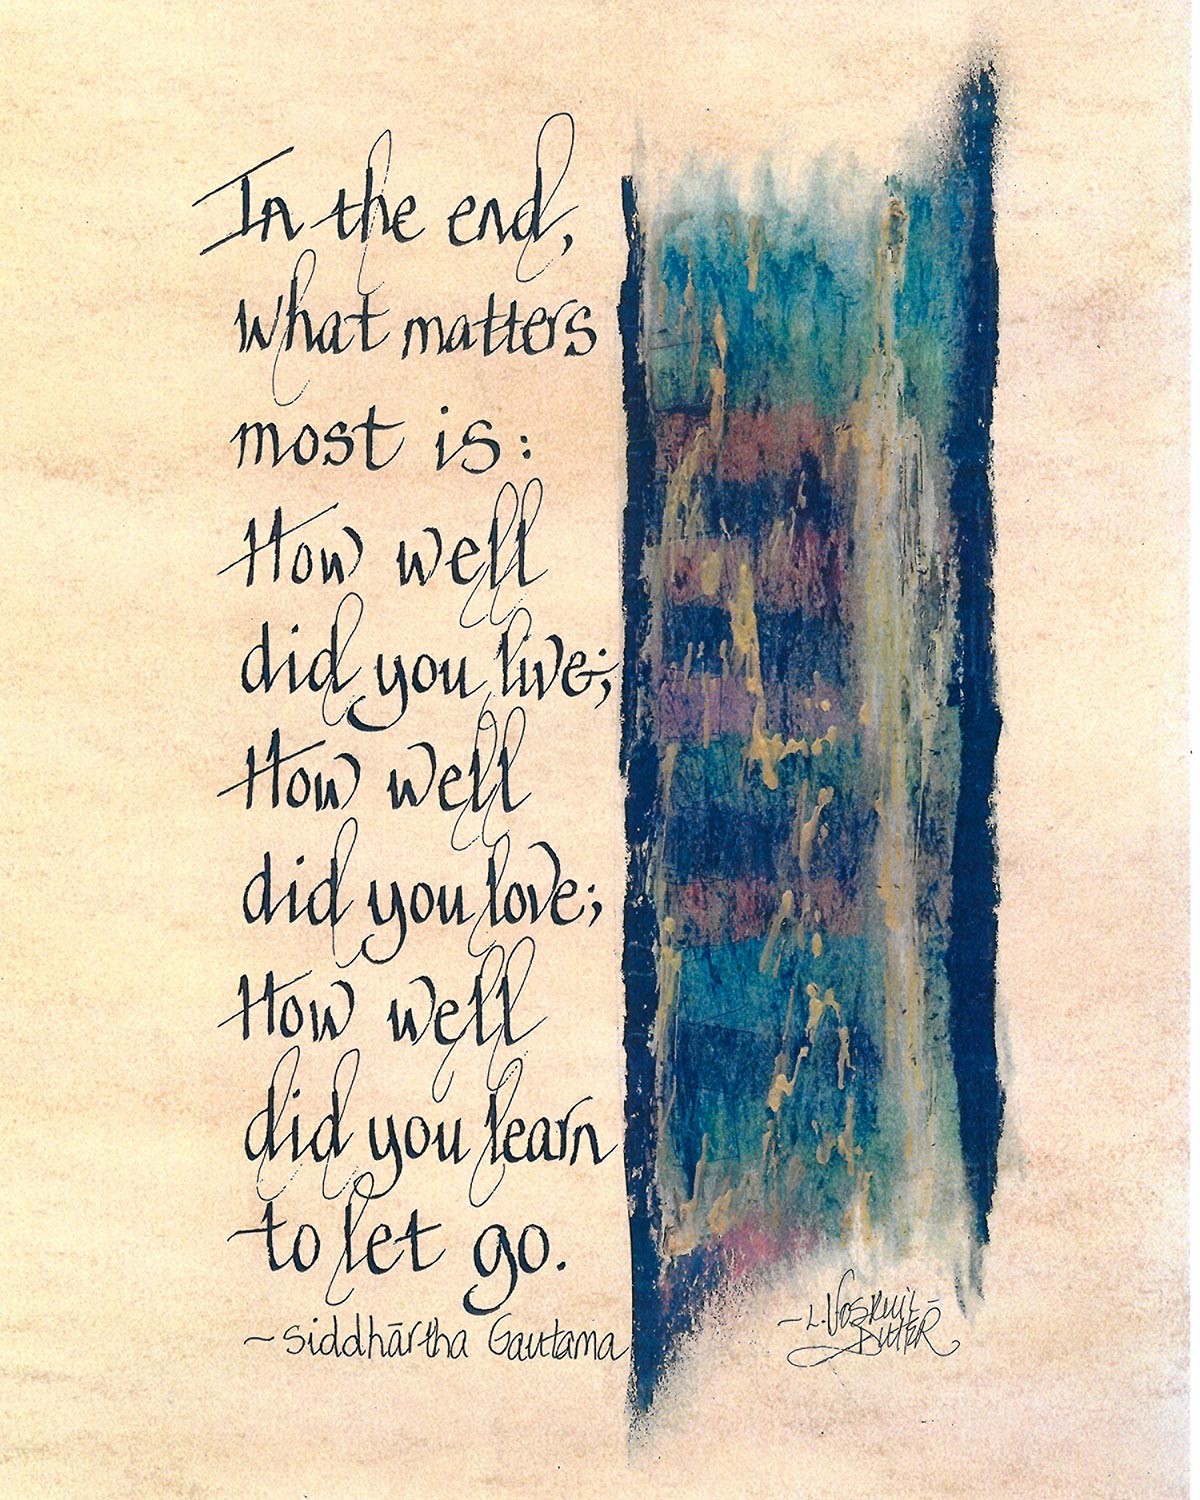 In the end,
What matters
most is:
How well
did you live;
How well
did you love;
How well
did you learn
to let go.
~Siddhārtha Gautama
- L. Voskuil-
Dutter